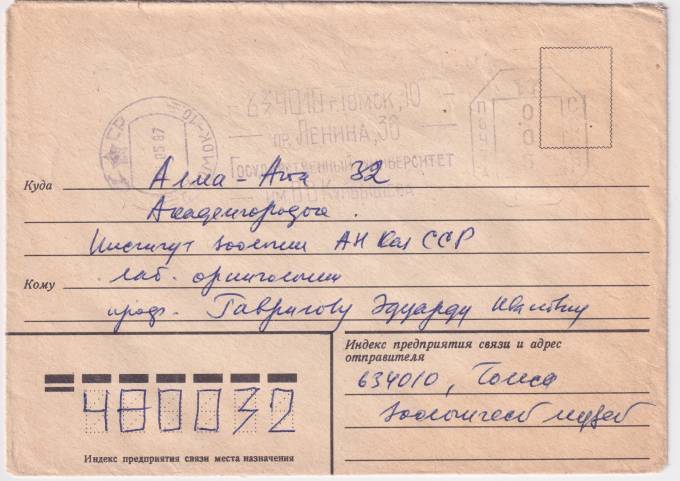 634010 г. Томск, 10
пр. Ленина, 36
Государственный университет
им. В.В. Куйбышева
Куда Алма-Ата 32
Академгородок.
Институт зоологии АН Каз ССР
Кому лаб. орнитологии
проф. Гаврилову Эдуарду Ивановичу
Индекс предприятия связи и адрес
отправителя
634010, Томск
Зоологический музей
480032
Индекс предприятия связи места назначения